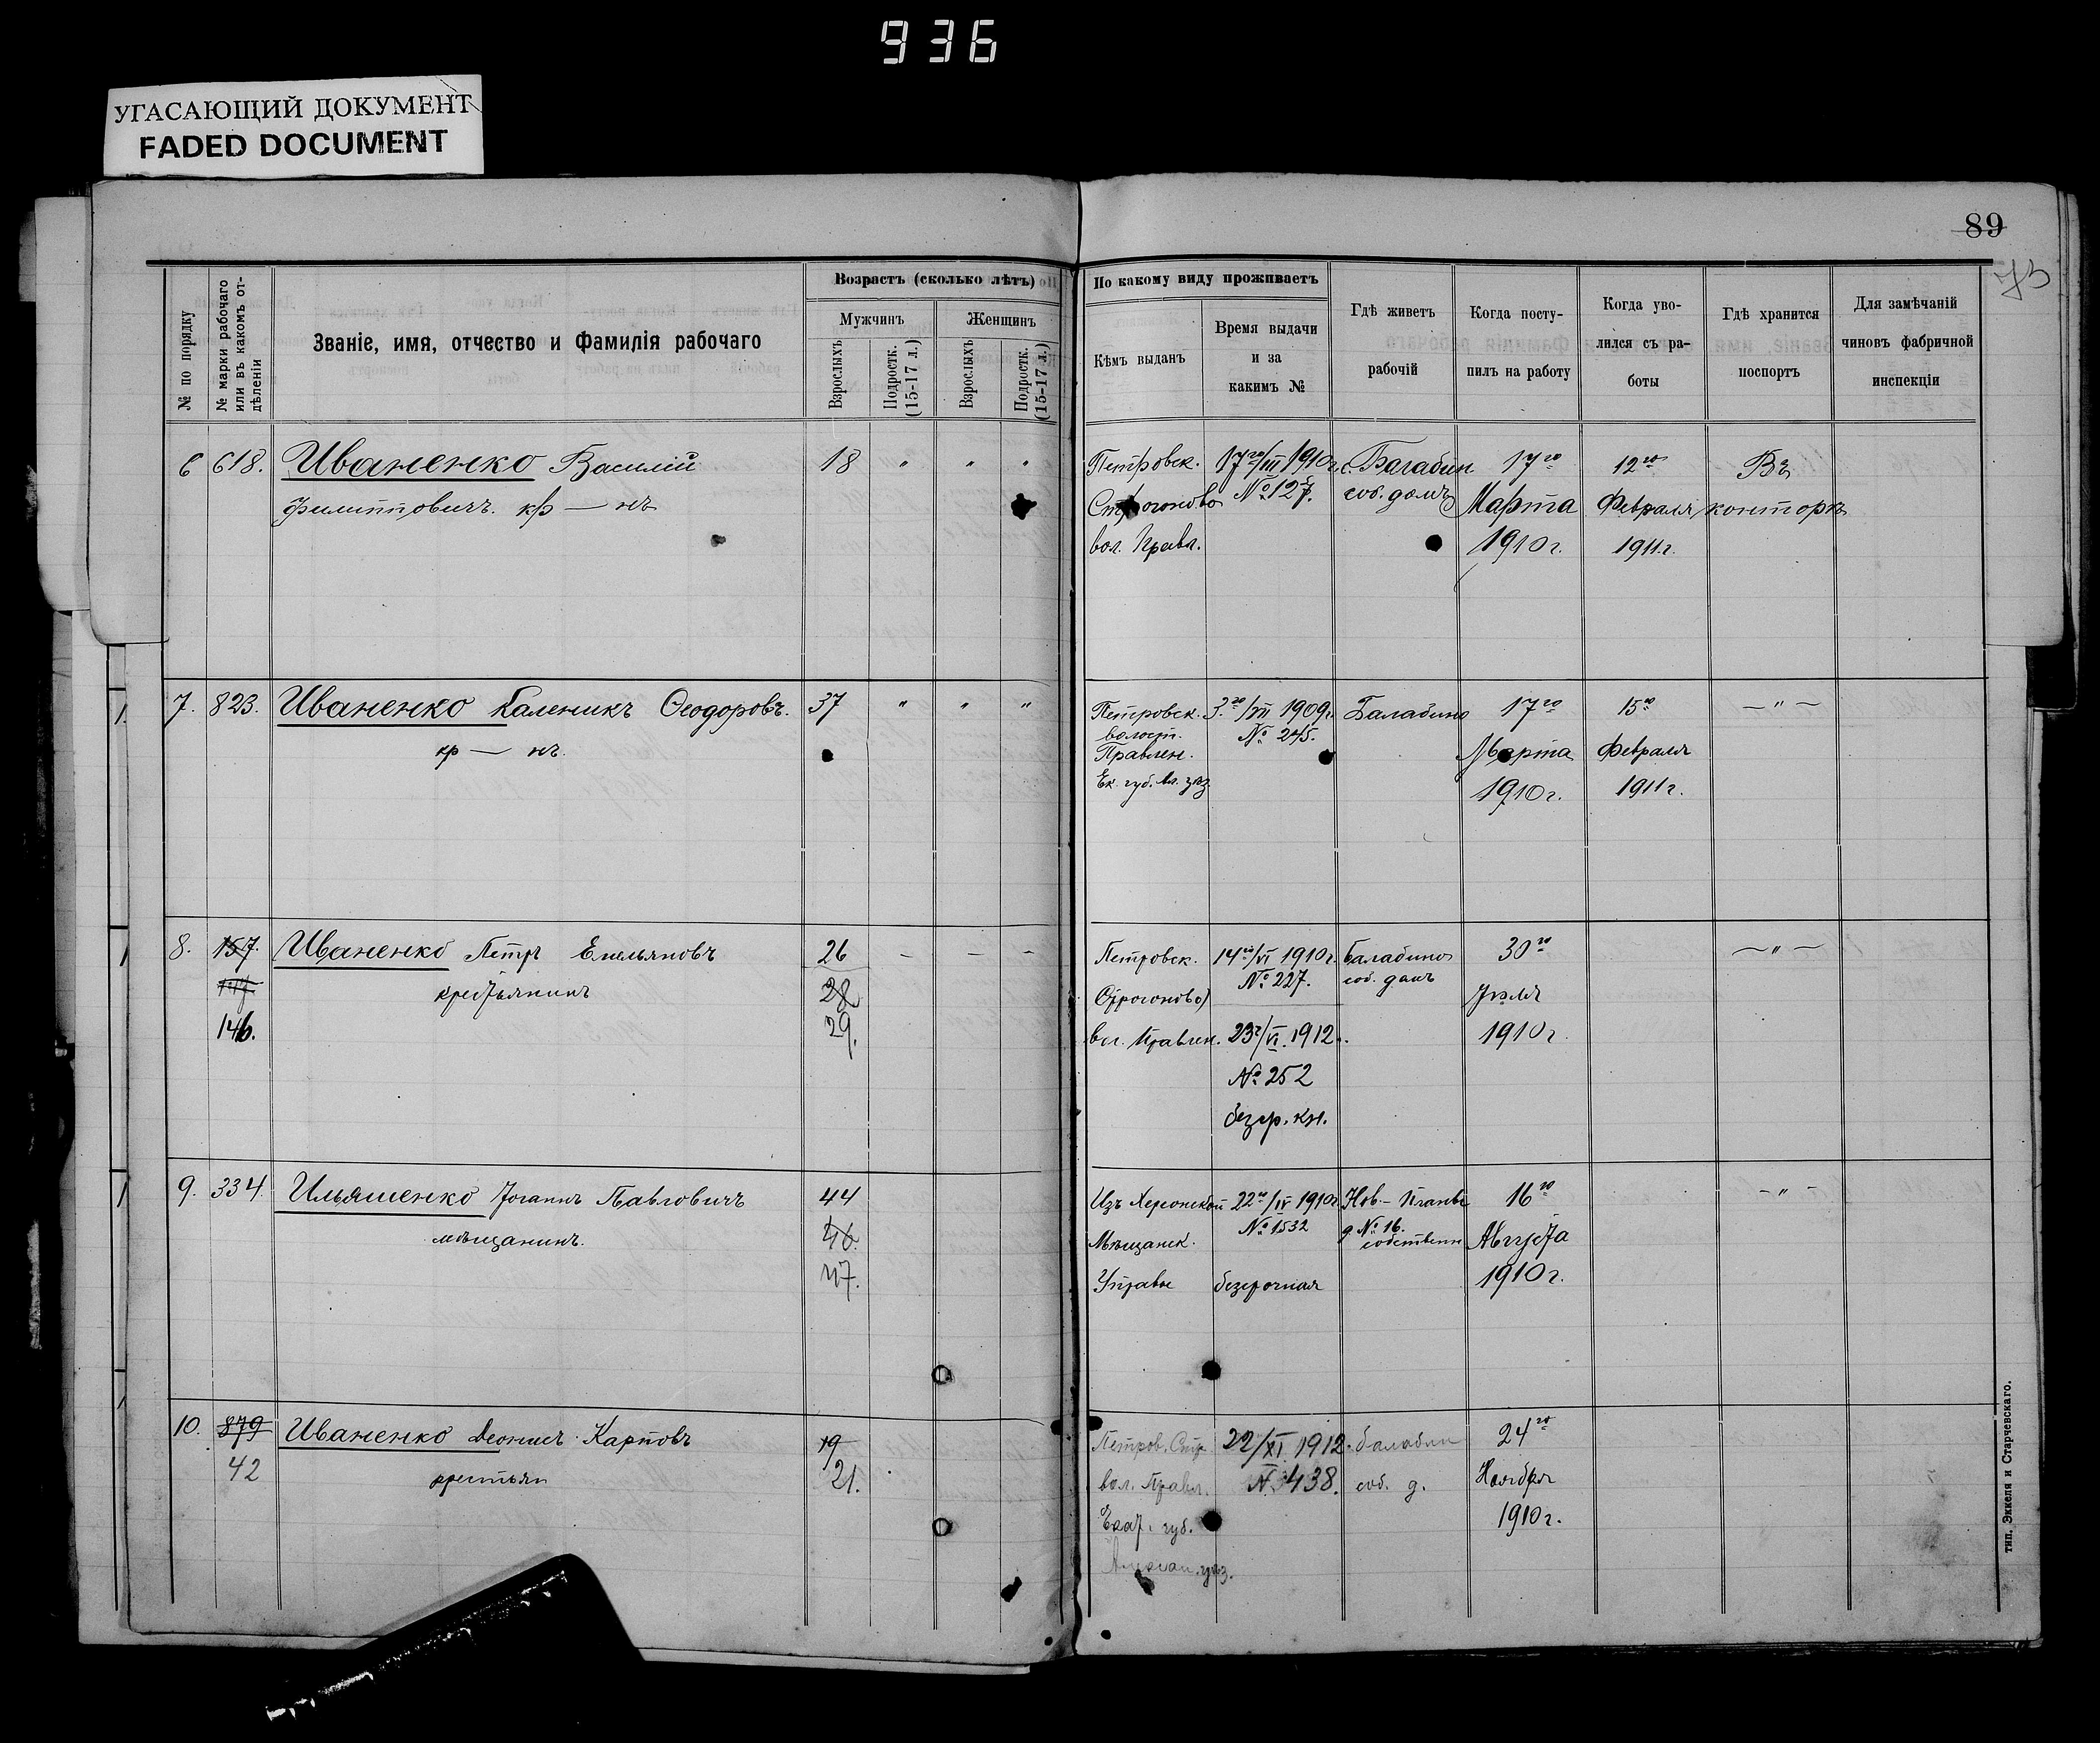 936
УГАСАЮЩИЙ ДОКУМЕНТ
FADED DOCUMENT
89
№ по порядку
№ марки рабочаго
или въ какомъ от-
дѣленіи
Званіе, имя, отчество и фамилія рабочаго
Возрастъ (сколько лѣтъ)
Мужчинъ
Женщинъ
Взрослыхъ
Подростк.
(15-17 л.)
Взрослыхъ
Подростк.
(15-17 л.)
По какому виду проживаетъ
Кѣмъ выданъ
Время выдачи
и за
какимъ №
Гдѣ живетъ
рабочій
Когда посту-
пилъ на работу
Когда уво-
лился съ ра-
боты
Гдѣ хранится
поспортъ
Для замѣчаній
чиновъ фабричной
инспекціи
6 618. Иваненко Василій 18 " " "
Филипповичъ. кр — нъ
Петровск. 17го/III 1910г. с. Балабин 17го 12го Въ
Строгоново № 127. соб. домъ Марта Февраля конторѣ
вол. Правл. 1910 г. 1911 г.
7. 823. Иваненко Каленикъ Ѳеодоровъ. 37 " " "
кр — нъ.
Петровск. 3го/VII 1909г. Балабино 17го 15го — " —
волост. № 245.
Правлен. Марта Февраля
Ек. губ. Ал. уѣз. 1910 г. 1911 г.
8. 157. Иваненко Петръ Емельяновъ 26 - - -
крестьянинъ 28
146. 29.
Петровск. 14го/VI 1910г. Балабино 30го — " —
Строгоново № 227. соб. домъ Іюля
вол. Правлен. 23г/VI. 1912. 1910 г.
№ 252
безср. кн.
9. 334. Ильяшенко Іоганнъ Павловичъ 44
мѣщанинъ. 46.
47.
Изъ Херсонской 22го/IV 1910г. Нов.- Планъ 16го — " —
Мѣщанск. № 1532 д № 16. собственн Августа
Управы безсрочная 1910 г.
10. 879 Иваненко Деонис Карповъ 19
42 крестьян 21.
Петров. Стр. 22/XI 1912. балабин 24го
вол. Правл. № 438. соб. д. Ноября
Екат. губ. 1910 г.
уѣз.
тип. Эккеля и Старчевскаго.